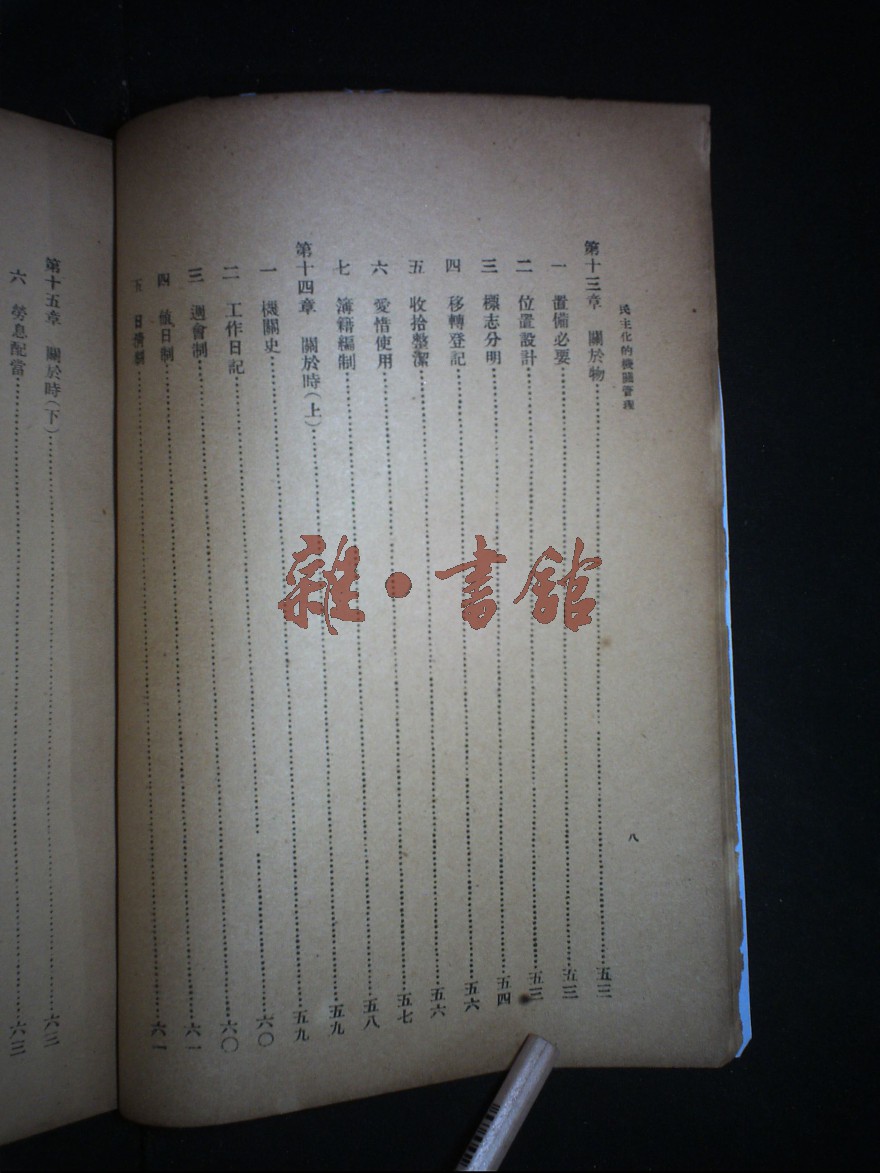 民主化的機關管理
八
第十三章 關於物 五三
一 置備必要 五三
二 位置設計 五三
三 標志分明 五四
四 移轉登記 五六
五 收拾整潔 五六
六 愛惜使用 五七
七 簿籍編制 五八
第十四章 關於時(上) 五九
一 機關史 五九
二 工作日記 六〇
三 週會制 六〇
四 日制 六一
五 日 六一
第十五章 關於時(下) 六三
六 勞息配當 六三
雜·書館